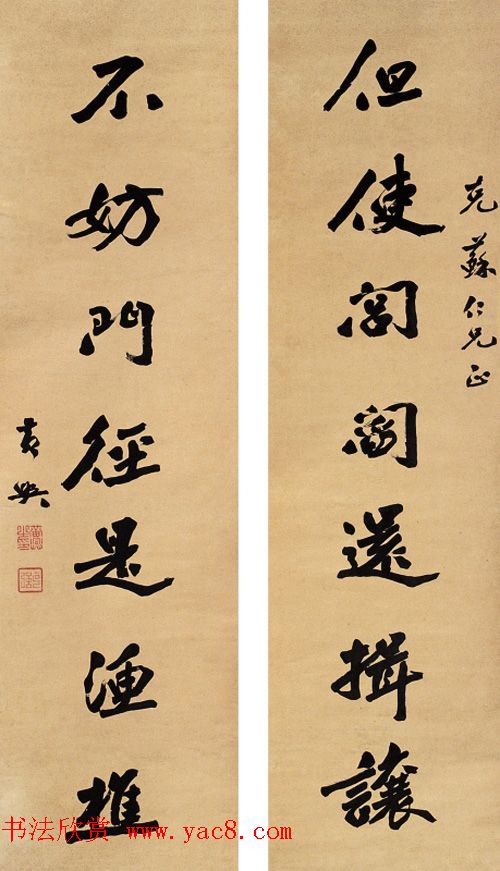 克蘇仁兄正
但使閭閻還揖讓
不妨門徑是漁樵
黃興
书法欣赏 www.yac8.com